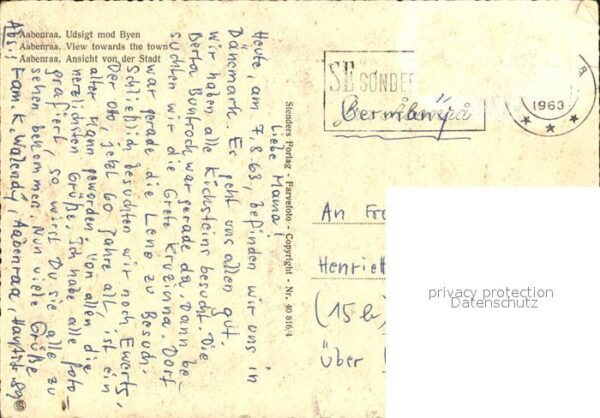 Aabenraa. Udsigt mod Byen
Aabenraa. View towards the town
Aabenraa. Ansicht von der Stadt
Liebe Mama!
Heute, am 7.8.63, befinden wir uns in
Dänemark. Es geht uns allen gut.
Wir haben alle Kichsteins besucht. Die
Berta Buntrock war gerade da. Dann be-
suchten wir die Grete Kruzinna. Dort
war gerade die Lene zu Besuch.
Schließlich besuchten wir noch Ewerts,
Der Otto, jetzt 60 Jahre alt, ist ein
alter Mann geworden. Von allen die
herzlichsten Grüße. Ich habe alle foto-
grafiert, so wirst Du sie alle zu
sehen bekommen. Nun viele Grüße
Abs.: Fam. K. Walendy, Aabenraa
Stenders Forlag - Farvefoto - Copyright - Nr. 40 816/4
SE SØNDER
Germany
1963
An Fra
Henriett
(15b)
über
privacy protection
Datenschutz